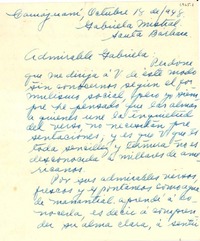 Camagüey, Octubre 14 de 1948
Gabriela Mistral
Santa Barbara
Admirable Gabriela:
Perdone
que me dirija a V de este modo
sin conocernos según el for
mulismo social, pero yo siem
pre he pensado que las almas
a quienes une la inquietud
del verso, no necesitan pre
sentaciones, y es que V que es
toda sencillez y llaneza no es
desconocida a millares de ame
ricanos.
Por sus admirables versos
frescos y espontáneos como agua
de manantial, aprendí a co
nocerla, es decir a compren
der su alma clara, a sentir